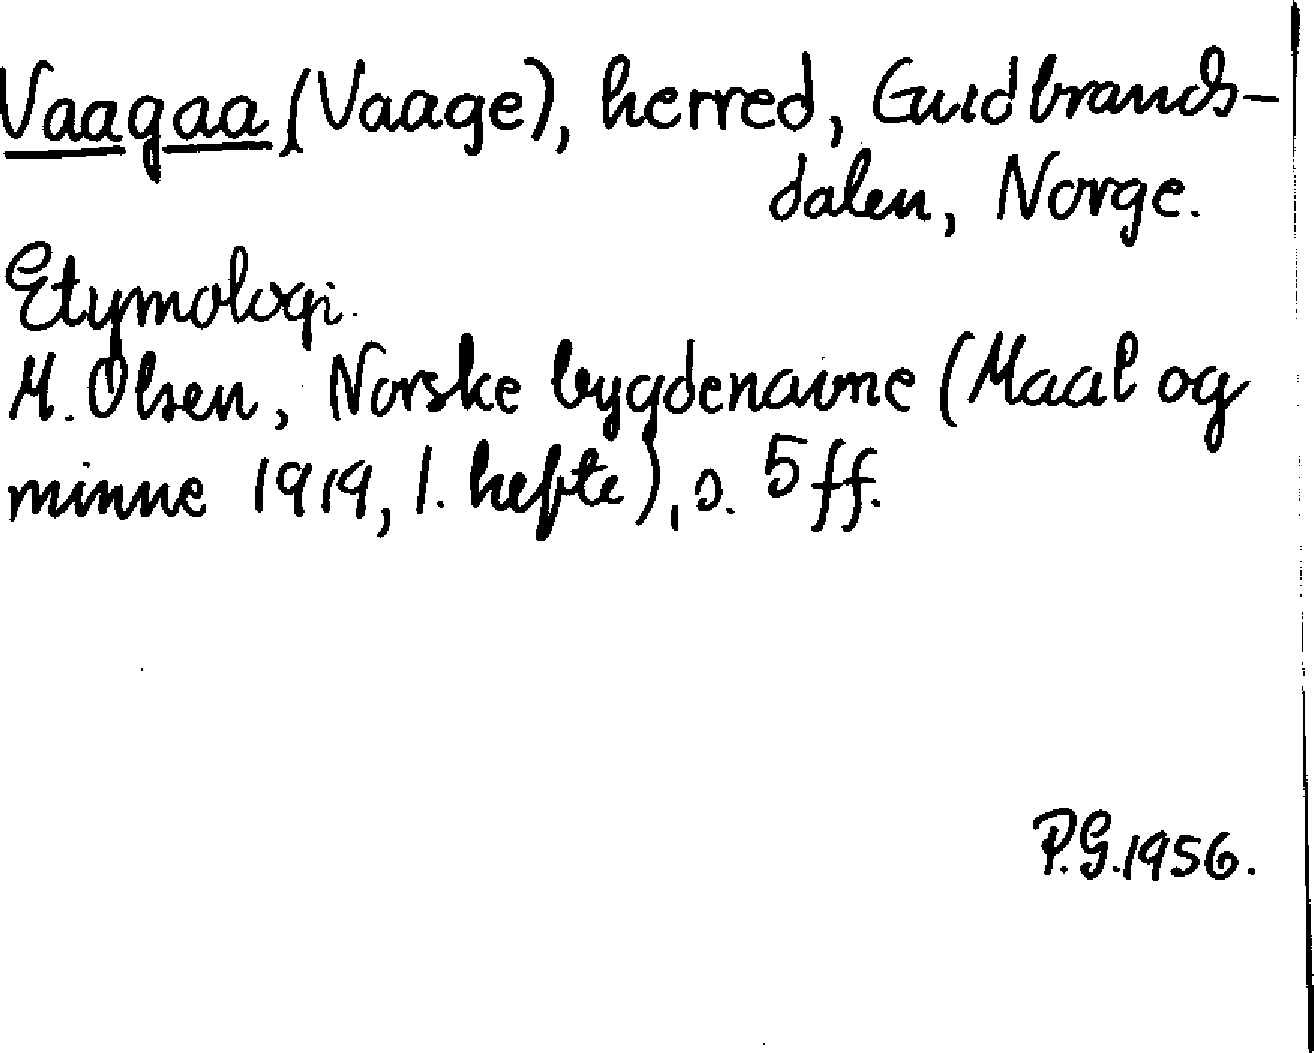 Vaagaa (Vaage), herred, Gudbrands-
dalen, Norge.
Etymologi.
M. Olsen, Norske bygdenavne (Maal og
minne 1919, 1. hefte), s. 5 ff.
P.G. 1956.